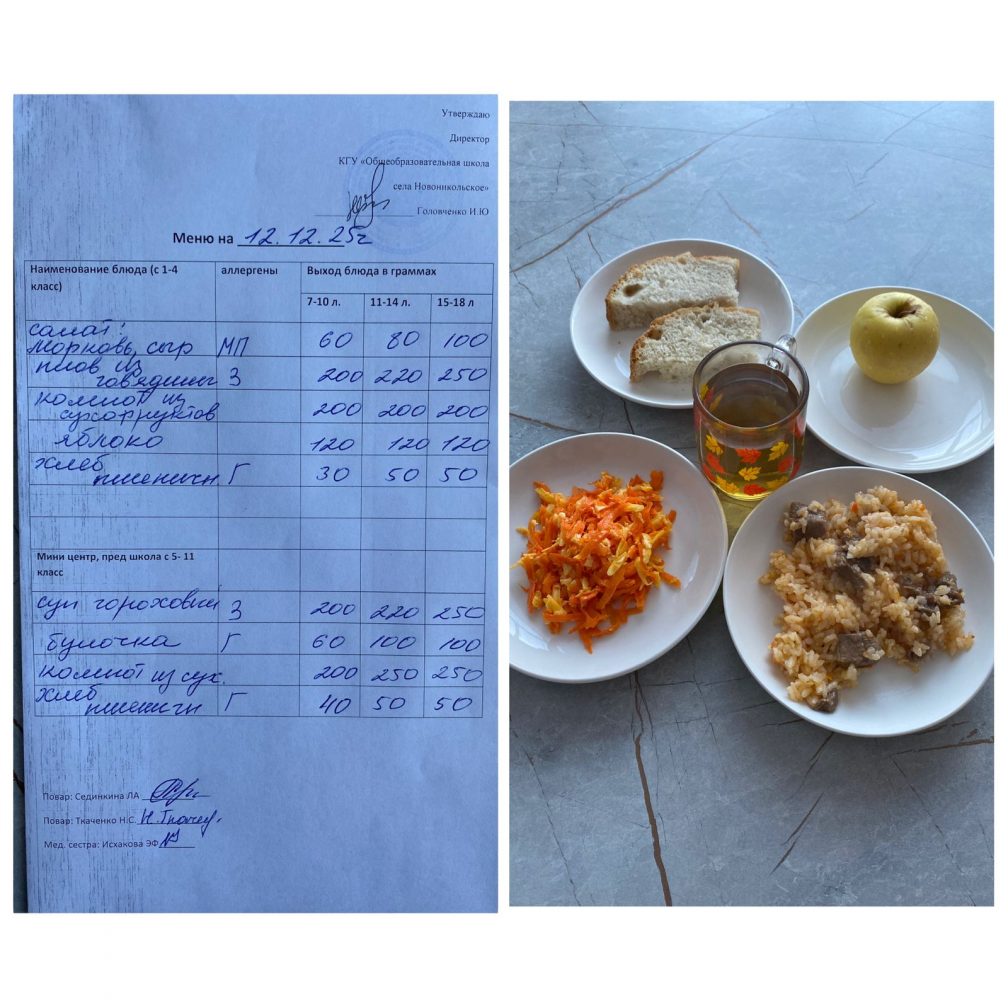 Утверждаю
Директор
КГУ «Общеобразовательная школа
села Новоникольское»
Головченко И.Ю
Меню на 12.12.25г
Наименование блюда (с 1-4 класс) аллергены Выход блюда в граммах
7-10 л. 11-14 л. 15-18 л
салат:
морковь, сыр МП 60 80 100
плов из
говядины З 200 220 250
компот из
сухофруктов 200 200 200
яблоко 120 120 120
хлеб
пшеничн Г 30 50 50
Мини центр, пред школа с 5- 11
класс
суп гороховый З 200 220 250
булочка Г 60 100 100
компот из сух. 200 250 250
хлеб
пшеничн Г 40 50 50
Повар: Сединкина ЛА
Повар: Ткаченко Н.С.
Мед. сестра: Исхакова ЭФ